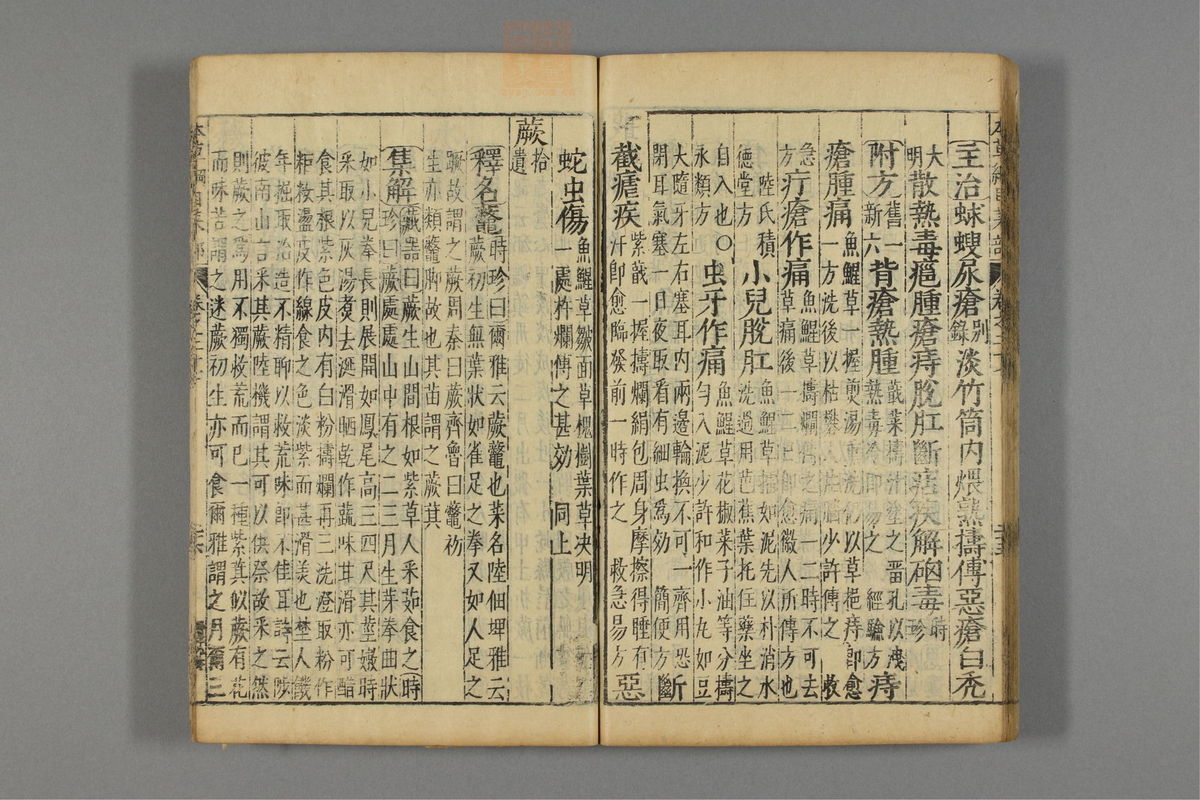 主治蠼螋尿瘡別錄淡竹筒內煨熟擣傅惡瘡白禿
大明散熱毒癰腫瘡痔脫肛斷痁疾解硇毒時珍
附方舊一新六背瘡熱腫蕺菜擣汁塗之留孔以洩熱毒冷即易之 經驗方痔
瘡腫痛魚鯹草一握煎湯熏洗仍以草挹痔即愈一方洗後以枯礬入片腦少許傅之 救
急方疔瘡作痛魚鯹草擣爛傅之痛一二時不可去草痛後一二日即愈徽人所傳方也
陸氏積德堂方小兒脫肛魚鯹草擂如泥先以朴消水洗過用芭蕉葉托住藥坐之
自入也○永類方虫牙作痛魚鯹草花椒菜子油等分擣勻入泥少許和作小丸如豆
大隨牙左右塞耳內兩邊輪換不可一齊用恐閉耳氣塞一日夜取看有細虫為効 簡便方斷
截瘧疾紫蕺一握擣爛絹包周身摩擦得睡有汗即愈臨發前一時作之 救急易方惡
蛇虫傷魚鯹草皺面草槐樹葉草决明一處杵爛傅之甚効 同上
蕨拾遺
釋名虌時珍曰爾雅云蕨虌也菜名陸佃埤雅云蕨初生無葉狀如雀足之拳又如人足之
蹶故謂之蕨周秦曰蕨齊魯曰虌初生亦類鼈脚故也其苗謂之蕨萁
集解藏器曰蕨生山間根如紫草人采茹食之時珍曰蕨處處山中有之二三月生芽拳曲狀
如小兒拳長則展開如鳳尾高三四尺其莖嫩時采取以灰湯煑去涎滑晒乾作蔬味甘滑亦可醋
食其根紫色皮內有白粉擣爛再三洗澄取粉作粔籹盪皮作線食之色淡紫而甚滑美也埜人饑
年掘取治造不精聊以救荒味即不佳耳詩云陟彼南山言采其蕨陸機謂其可以供祭故采之然
則蕨之為用不獨救荒而已一種紫萁似蕨有花而味苦謂之迷蕨初生亦可食爾雅謂之月爾三